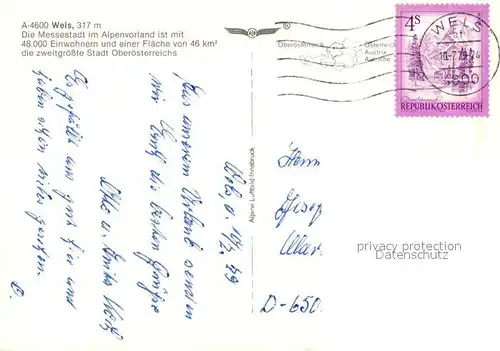 A-4600 Wels, 317 m
Die Messestadt im Alpenvorland ist mit
48.000 Einwohnern und einer Fläche von 46 km²
die zweitgrößte Stadt Oberösterreichs
Oberösterreich
Österreich
Austria
Autriche
4S
REPUBLIK ÖSTERREICH
WELS
4600
Alpine Luftbild Innsbruck
Wels, d. 10/7. 79
Aus unserem Urlaub senden
wir Euch die besten Grüße
Es gefällt uns gut hier und
haben schon vieles gesehen.
Herrn
D-650
privacy protection
Datenschutz